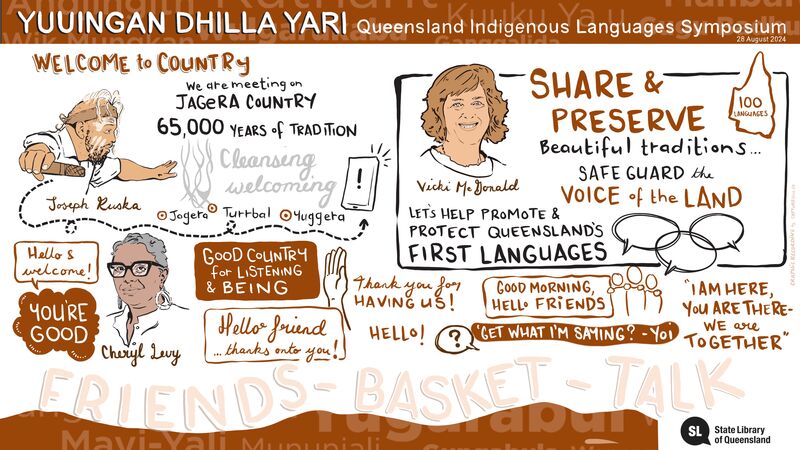 YUUINGAN DHILLA YARI Queensland Indigenous Languages Symposium
28 August 2024
Kuuku Ya'u
Wik Mungkan
Ganggalida
WELCOME to COUNTRY
We are meeting on
JAGERA COUNTRY
65,000 YEARS OF TRADITION
Cleansing
welcoming
Joseph Ruska
Jagera Turrbal Yuggera
!
Hello &
welcome!
YOU'RE
GOOD
Cheryl Levy
GOOD COUNTRY
for LISTENING
& BEING
Hello friend
...thanks onto you!
Vicki McDonald
SHARE &
PRESERVE
100
LANGUAGES
Beautiful traditions...
SAFE GUARD the
VOICE of the LAND
LET'S HELP PROMOTE &
PROTECT QUEENSLAND'S
FIRST LANGUAGES
Thank you for
HAVING US!
HELLO!
GOOD MORNING,
HELLO FRIENDS
?
'GET WHAT I'M SAYING? - Yoi
"I AM HERE,
YOU ARE THERE-
WE are
TOGETHER"
FRIENDS - BASKET - TALK
Yugarabul
Mayi-Yali Mununjali
SL
State Library
of Queensland